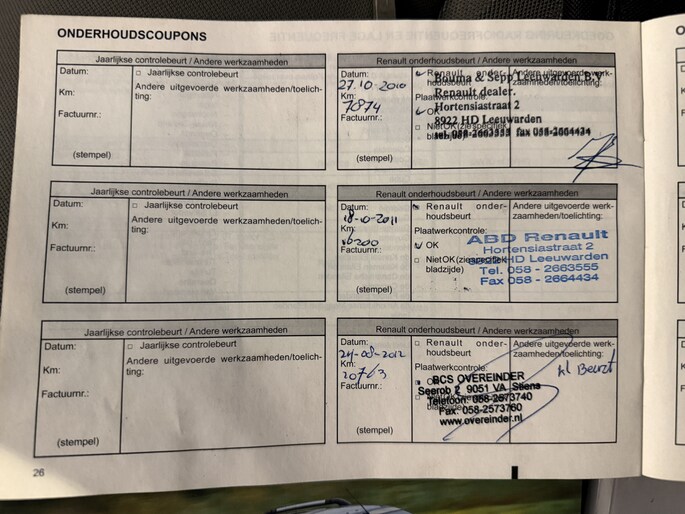 ONDERHOUDSCOUPONS
Jaarlijkse controlebeurt / Andere werkzaamheden
Datum:
□ Jaarlijkse controlebeurt
Km:
Andere uitgevoerde werkzaamheden/toelich-
ting:
Factuurnr.:
(stempel)
Renault onderhoudsbeurt / Andere werkzaamheden
Datum:
27.10-2010
Km:
7874
Factuurnr.:
(stempel)
Renault onder-
houdsbeurt
Plaatwerkcontrole:
OK
□ Niet OK (zie specifiek
bladzijde)
Andere uitgevoerde werk-
zaamheden/toelichting:
Bouma & Sepp Leeuwarden B.V
Renault dealer.
Hortensiastraat 2
8922 HD Leeuwarden
tel. 058-2663555 fax 058-2664434
Jaarlijkse controlebeurt / Andere werkzaamheden
Datum:
□ Jaarlijkse controlebeurt
Km:
Andere uitgevoerde werkzaamheden/toelich-
ting:
Factuurnr.:
(stempel)
Renault onderhoudsbeurt / Andere werkzaamheden
Datum:
18-10-2011
Km:
Factuurnr.:
(stempel)
Renault onder-
houdsbeurt
Plaatwerkcontrole:
OK
□ Niet OK (zie specifiek
bladzijde)
Andere uitgevoerde werk-
zaamheden/toelichting:
ABD Renault
Hortensiastraat 2
8922 HD Leeuwarden
Tel. 058 - 2663555
Fax 058 - 2664434
Jaarlijkse controlebeurt / Andere werkzaamheden
Datum:
□ Jaarlijkse controlebeurt
Km:
Andere uitgevoerde werkzaamheden/toelich-
ting:
Factuurnr.:
(stempel)
Renault onderhoudsbeurt / Andere werkzaamheden
Datum:
24-08-2012
Km:
Factuurnr.:
(stempel)
□ Renault onder-
houdsbeurt
Plaatwerkcontrole:
Andere uitgevoerde werk-
zaamheden/toelichting:
kl Beurt
BCS OVEREINDER
Seerob 2 9051 VA Stiens
Telefoon: 058-2573740
Fax: 058-2573760
www.overeinder.nl
26